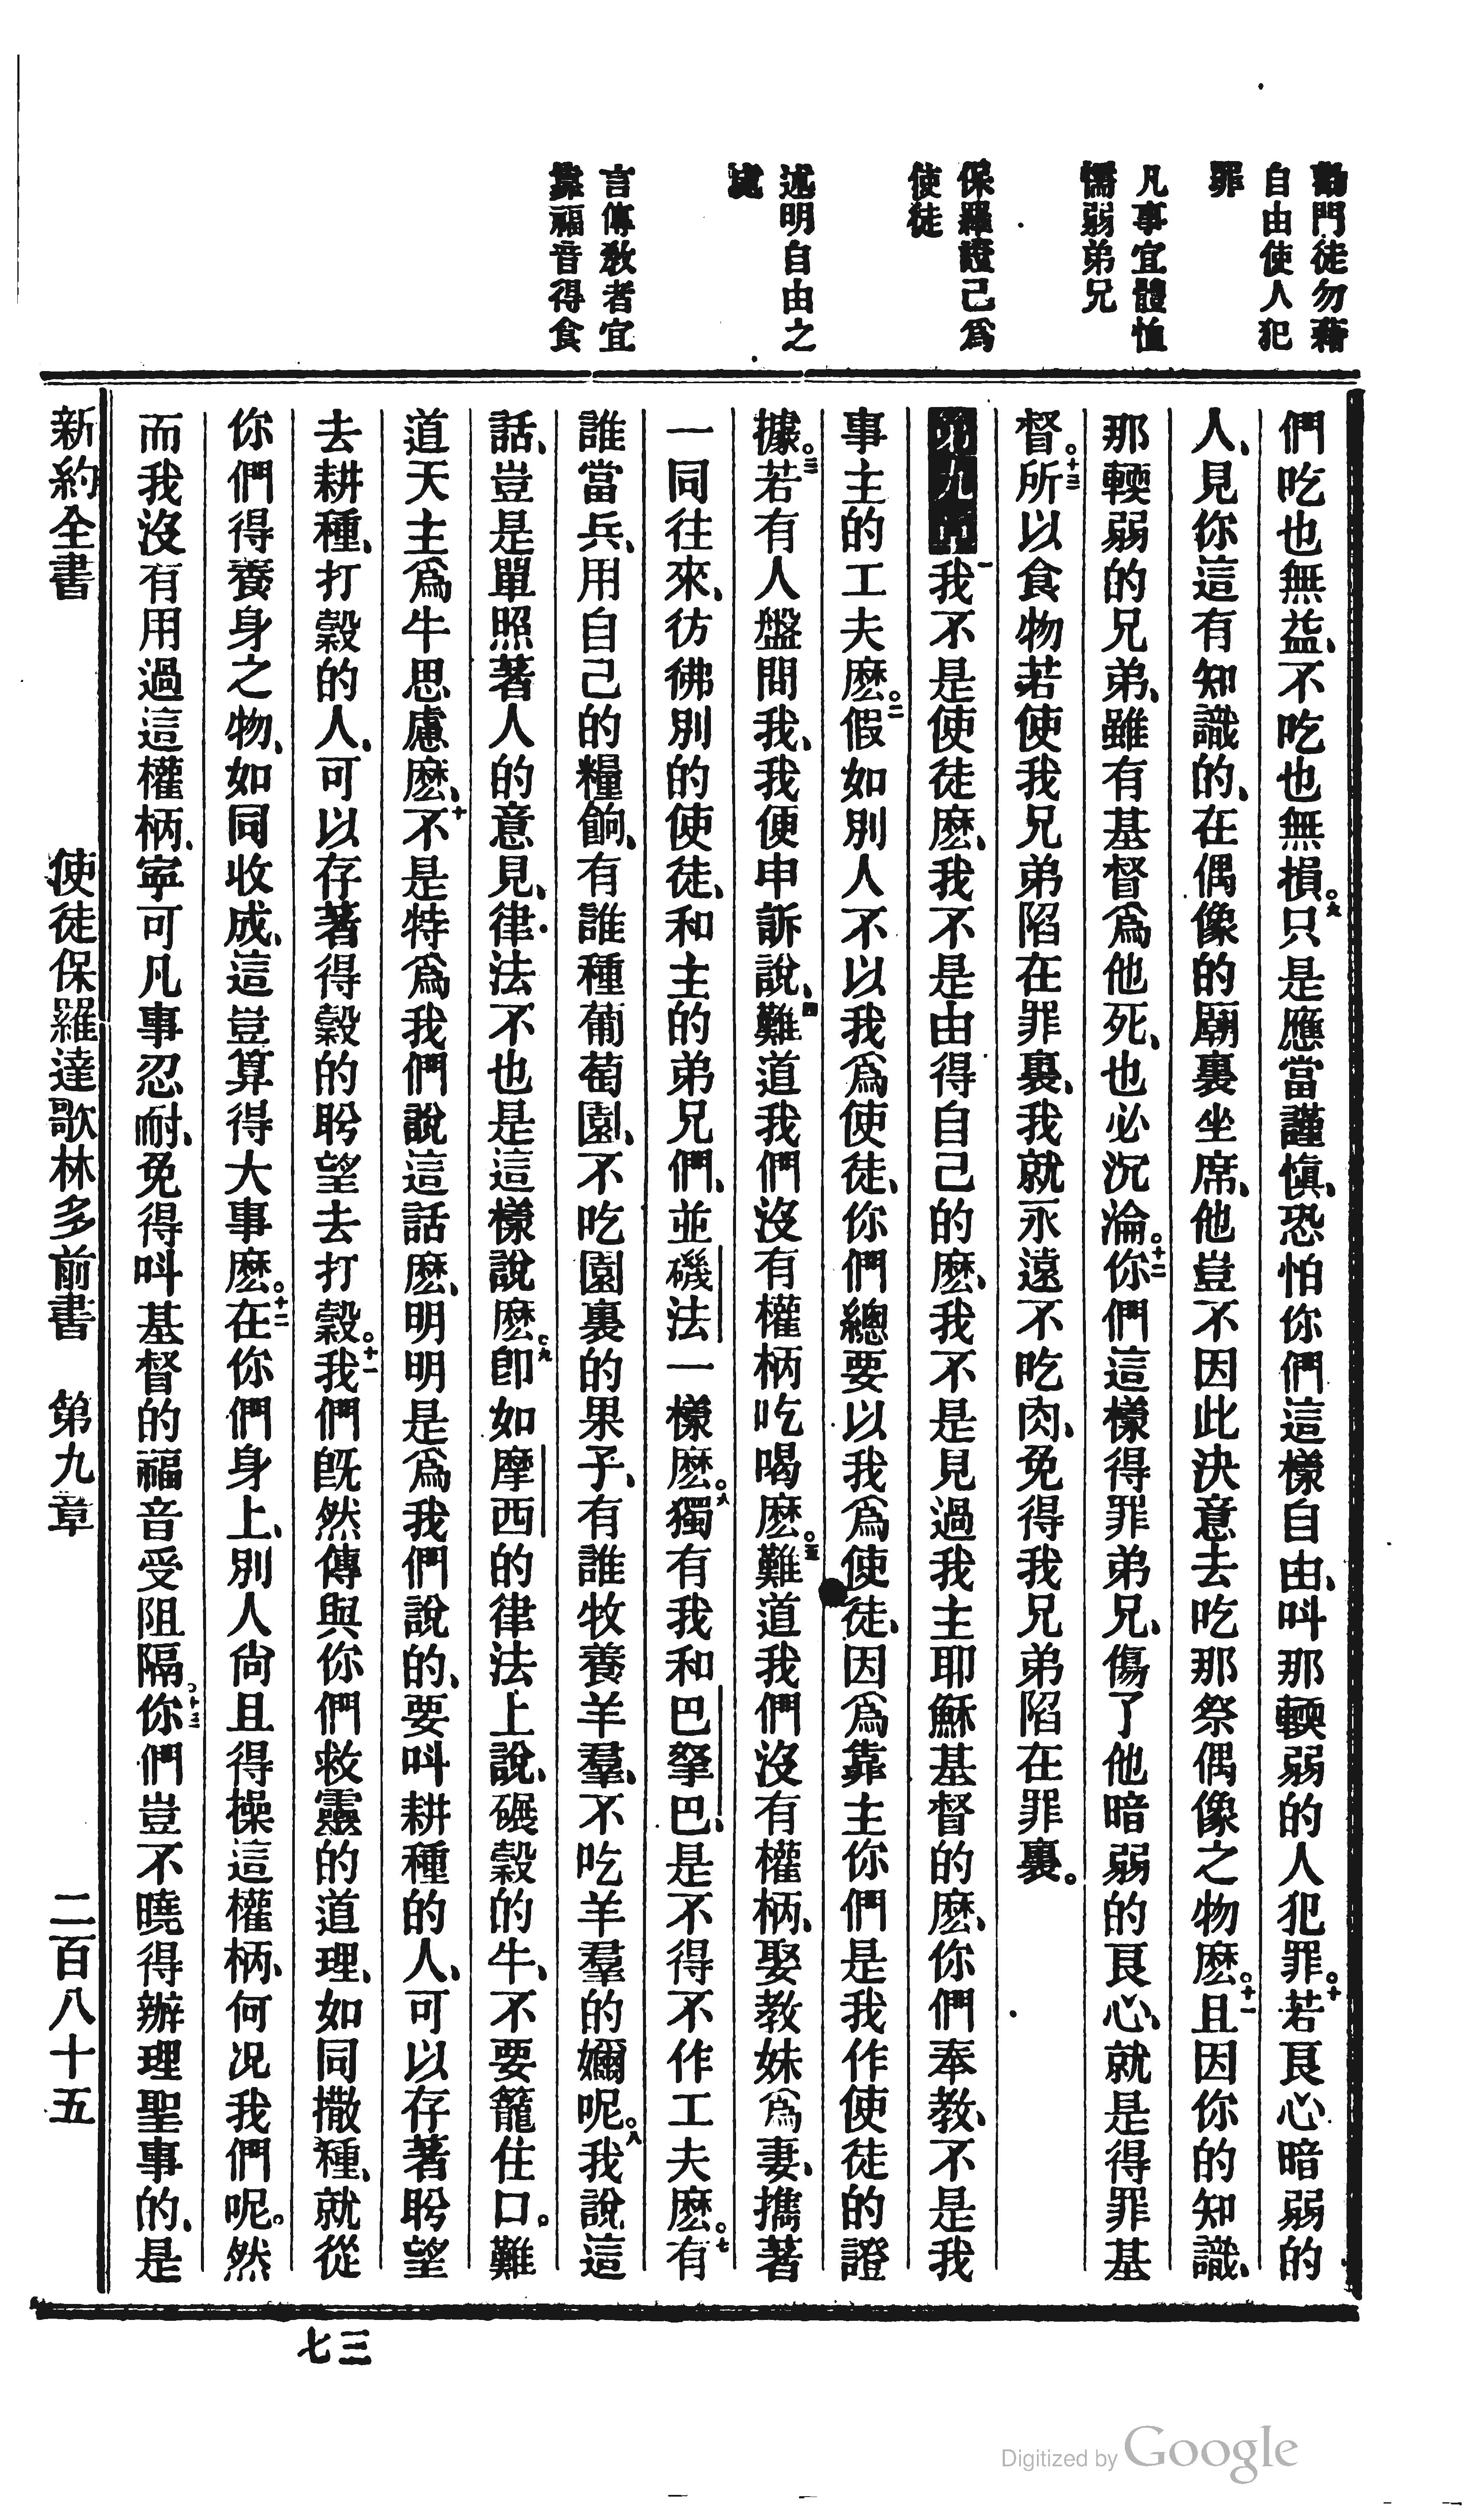 勸門徒勿藉
自由使人犯
罪
凡事宜體恤
懦弱弟兄
保羅證己爲
使徒
述明自由之
言傳教者宜
靠福音得食
們吃也無益、不吃也無損。九只是應當謹愼、恐怕你們這樣自由、呌那輭弱的人犯罪。十若良心暗弱的
人、見你這有知識的、在偶像的廟裏坐席、他豈不因此決意去吃那祭偶像之物麽。十一且因你的知識、
那輭弱的兄弟、雖有基督爲他死、也必沉淪。十二你們這樣得罪弟兄、傷了他暗弱的良心、就是得罪基
督。十三所以食物若使我兄弟陷在罪裏、我就永遠不吃肉、免得我兄弟陷在罪裏。
第九章一我不是使徒麽、我不是由得自己的麽、我不是見過我主耶穌基督的麽、你們奉教、不是我
事主的工夫麽。二假如別人不以我爲使徒、你們總要以我爲使徒、因爲靠主你們是我作使徒的證
據。三若有人盤問我、我便申訴說、四難道我們沒有權柄吃喝麽。五難道我們沒有權柄、娶教妹爲妻、攜著
一同往來、彷彿別的使徒、和主的弟兄們、並磯法一樣麽。八獨有我和巴拏巴、是不得不作工夫麽。七有
誰當兵、用自己的糧餉、有誰種葡萄園、不吃園裏的果子、有誰牧養羊羣、不吃羊羣的嬭呢。八我說這
話、豈是單照著人的意見、律法不也是這樣說麽。九卽如摩西的律法上說、碾穀的牛、不要籠住口。難
道天主爲牛思慮麽、十不是特爲我們說這話麽、明明是爲我們說的、要呌耕種的人、可以存著盼望
去耕種、打穀的人、可以存著得穀的盼望去打穀。十一我們旣然傳與你們救靈的道理、如同撒種、就從
你們得養身之物、如同收成、這豈算得大事麽。十二在你們身上、別人尙且得操這權柄、何況我們呢。然
而我沒有用過這權柄、寧可凡事忍耐、免得呌基督的福音受阻隔。十三你們豈不曉得辦理聖事的、是
新約全書 使徒保羅達歌林多前書 第九章 二百八十五
三七
Digitized by Google